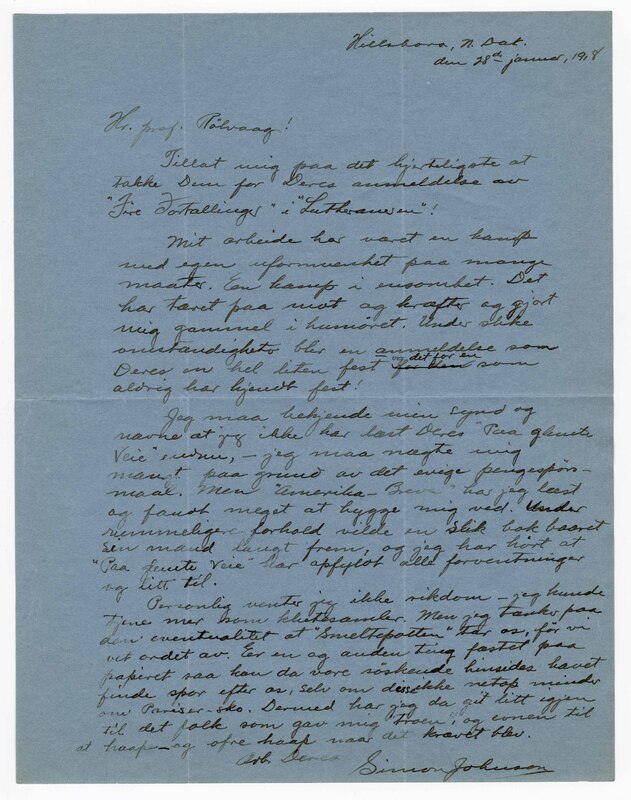 Hillsboro, N. Dak.
den 28de januar, 1918
Hr. prof. Rölvaag!
Tillat mig paa det hjerteligste at
takke Dem for Deres anmeldelse av
"Fire Fortællinger" i "Lutheraneren"!
Mit arbeide har været en kamp
med egen uformuenhet paa mange
maater. En kamp i ensomhet. Det
har tæret paa mot og kræfter og gjort
mig gammel i humöret. Under slike
omstændigheter blir en anmeldelse som
Deres en hel liten fest og det for en som
aldrig har kjendt fest!
Jeg maa bekjende min synd og
nævne at jeg ikke har læst Deres "Paa glemte
Veie" endnu, – jeg maa nægte mig
mangt paa grund av det evige pengespörs-
maal. Men "Amerika-Breve" har jeg læst
og fandt meget at hygge mig ved. Under
rummeligere forhold vilde en slik bok baaret
sin mand langt frem, og jeg har hört at
"Paa glemte Veie" har opfyldt alle forventninger
og litt til.
Personlig venter jeg ikke rikdom – jeg kunde
tjene mer som klutesamler. Men jeg tænker paa
den eventualitet at "Smeltepotten" tar os, för vi
vet ordet av. Er en og anden ting fæstet paa
papiret saa kan da vore söskende hinsides havet
finde spor efter os, selv om de ikke netop minder
om Pariser-sko. Dermed har jeg da git litt igjen
til det folk som gav mig troen, og evnen til
at haap – og ofre haap naar det krævet blev.
Deres
Simon Johnson